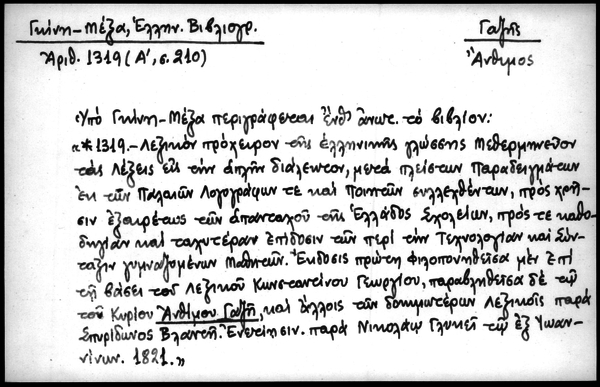 Γκίνη-Μέξα, Ἑλλην. Βιβλιογρ.
Ἀριθ. 1319 (Α', σ. 210)
Γαζῆς
Ἄνθιμος
Ὑπὸ Γκίνη-Μέξα περιγράφεται ἔνθ' ἀνωτ. τὸ βιβλίον:
«*1319.- Λεξικὸν πρόχειρον τῆς ἑλληνικῆς γλώσσης μεθερμηνεῦον
τὰς λέξεις εἰς τὴν ἁπλῆν διάλεκτον, μετὰ πλείστων Παραδειγμάτων
ἐκ τῶν Παλαιῶν Λογογράφων τὲ καὶ Ποιητῶν συλλεχθέντων, πρὸς χρῆ-
σιν ἐξαιρέτως τῶν ἁπανταχοῦ τῆς Ἑλλάδος Σχολείων, πρός τε καθο-
δηγίαν καὶ ταχυτέραν ἐπίδοσιν τῶν περὶ τὴν Τεχνολογίαν καὶ Σύν-
ταξιν γυμναζομένων Μαθητῶν. Ἔκδοσις πρώτη φιλοπονηθεῖσα μὲν ἐπὶ
τῇ βάσει τοῦ Λεξικοῦ Κωνσταντίνου Γεωργίου, παραβληθεῖσα δὲ τῷ
τοῦ Κυρίου Ἀνθίμου Γαζῆ, καὶ ἄλλοις τῶν δοκιμωτέρων Λεξικοῖς παρὰ
Σπυρίδωνος Βλαντῆ. Ἐνετίησιν. παρὰ Νικολάῳ Γλυκεῖ τῷ ἐξ Ἰωαν-
νίνων. 1821.»